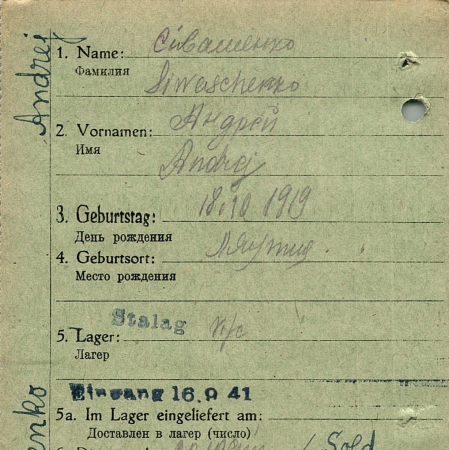 Andrej
1. Name: Сивашенко
Фамилия
Siwaschenko
2. Vornamen: Андрей
Имя
Andrej
3. Geburtstag: 18.10 1919
День рождения
4. Geburtsort:
Место рождения
Stalag
5. Lager:
Лагер
Eingang 16.9 41
5a. Im Lager eingeliefert am:
Доставлен в лагер (число)
enko
Sold